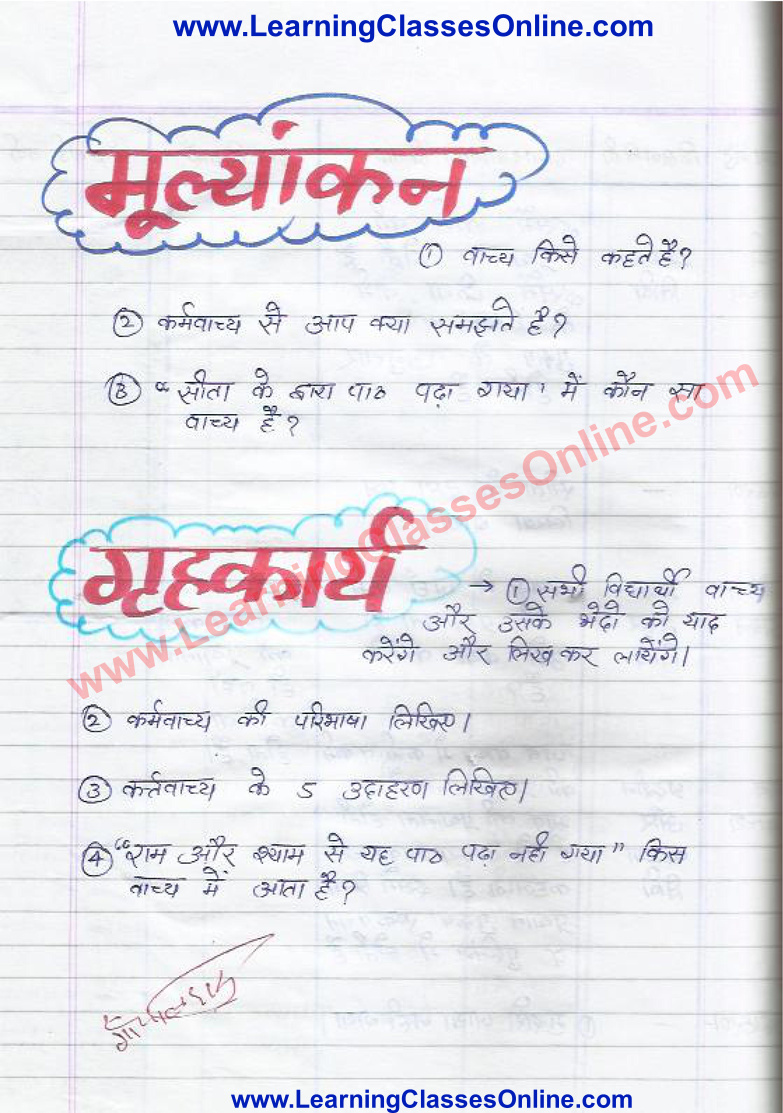 www.LearningClassesOnline.com
मूल्यांकन
① वाच्य किसे कहते है?
② कर्मवाच्य से आप क्या समझते है?
③ “सीता के द्वारा पाठ पढ़ा गया' में कौन सा
वाच्य है?
www.LearningClassesOnline.com
गृहकार्य
→ ① सभी विद्यार्थी वाच्य
और उसके भेदो को याद
करेंगे और लिख कर लायेंगे।
② कर्मवाच्य की परिभाषा लिखिए।
③ कर्त्तवाच्य के 5 उदाहरण लिखिए।
④ “राम और श्याम से यह पाठ पढ़ा नही गया” किस
वाच्य में आता है?
www.LearningClassesOnline.com